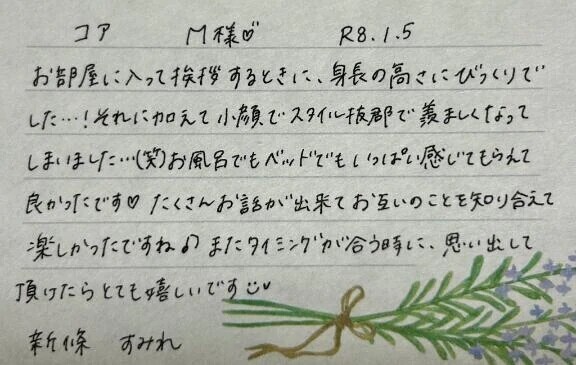 コア　M様♡　R8.1.5
お部屋に入って挨拶するときに、身長の高さにびっくりで
した…！それに加えて小顔でスタイル抜群で羨ましくなって
しまいました…(笑)お風呂でもベッドでもいっぱい感じてもらえて
良かったです♡ たくさんお話が出来てお互いのことを知り合えて
楽しかったですね♪ またタイミングが合う時に、思い出して
頂けたらとても嬉しいです
新條　すみれ